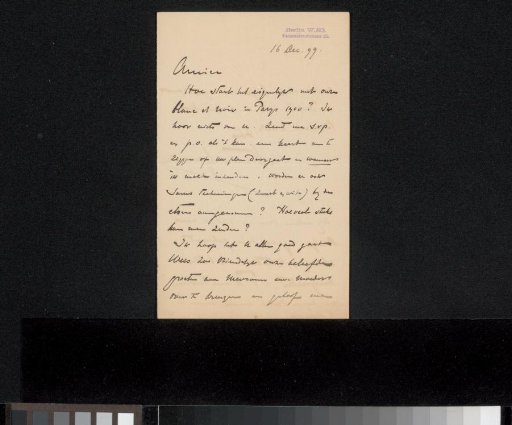 Berlin W.
16 Dec. 99.
Amice
Hoe staat het eigenlijk met onze
blanc et noir in Parys 1900? Ik
hoor niets van u. Zend me s.v.p.
es p.o. als 't kan een kaart om te
zeggen of uw plan doorgaat en wanneer
ik moet inzenden. Worden er ook
teekeningen (zwart &
etsen aangenomen? Hoeveel stuks
kan men zenden?
Ik hoop dat te allen goed gaat
Wees zoo vriendelyk onze beleefde
groeten aan Mevrouw uwe moeder
over te brengen en geloof me